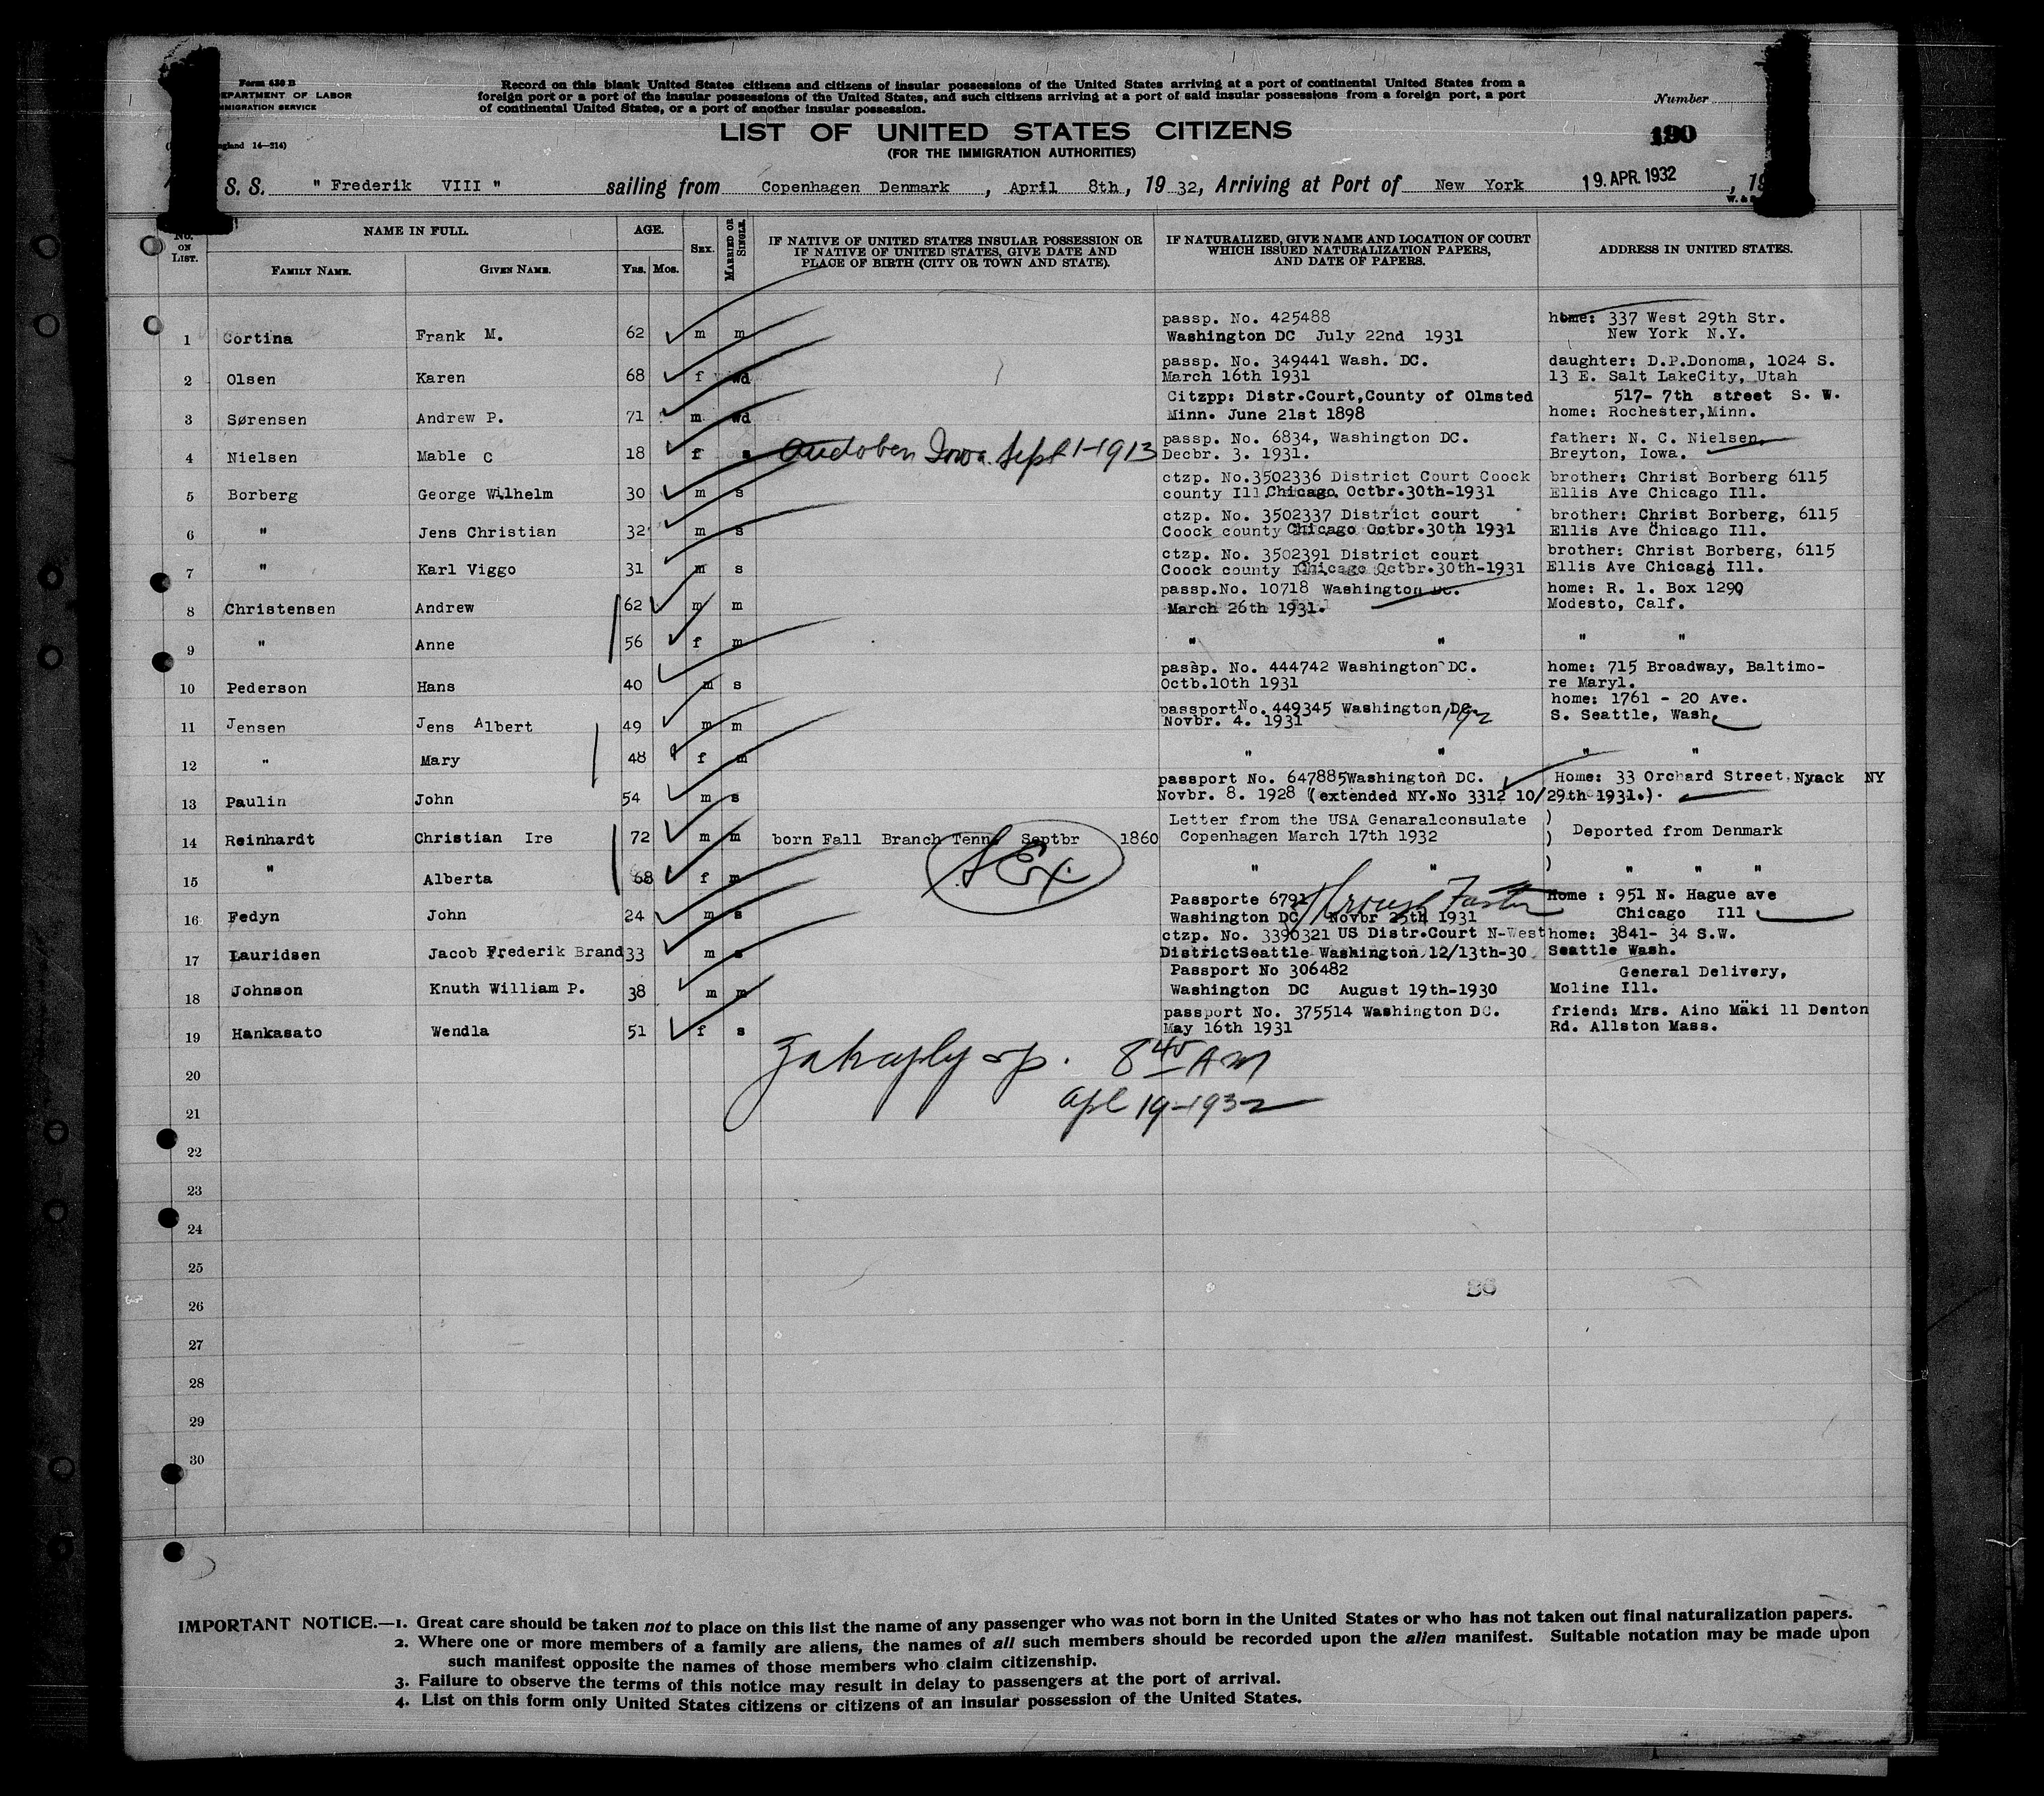 Form 630 B
DEPARTMENT OF LABOR
IMMIGRATION SERVICE
England 14—214)
Record on this blank United States citizens and citizens of insular possessions of the United States arriving at a port of continental United States from a
foreign port or a port of the insular possessions of the United States, and such citizens arriving at a port of said insular possessions from a foreign port, a port
of continental United States, or a port of another insular possession.
Number
190
LIST OF UNITED STATES CITIZENS
(FOR THE IMMIGRATION AUTHORITIES)
S. S. " Frederik VIII " sailing from Copenhagen Denmark , April 8th, 19 32, Arriving at Port of New York 19. APR. 1932 , 19
No. ON LIST. NAME IN FULL. AGE. SEX. MARRIED OR SINGLE. IF NATIVE OF UNITED STATES INSULAR POSSESSION OR IF NATIVE OF UNITED STATES, GIVE DATE AND PLACE OF BIRTH (CITY OR TOWN AND STATE). IF NATURALIZED, GIVE NAME AND LOCATION OF COURT WHICH ISSUED NATURALIZATION PAPERS, AND DATE OF PAPERS. ADDRESS IN UNITED STATES.
FAMILY NAME. GIVEN NAME. YRS. MOS.
passp. No. 425488 home: 337 West 29th Str.
1 Cortina Frank M. 62 m m Washington DC July 22nd 1931 New York N.Y.
passp. No. 349441 Wash. DC. daughter: D.P.Donoma, 1024 S.
2 Olsen Karen 68 f wd March 16th 1931 13 E. Salt LakeCity, Utah
Citzpp: Distr.Court,County of Olmsted 517- 7th street S. W.
3 Sørensen Andrew P. 71 m wd Minn. June 21st 1898 home: Rochester,Minn.
passp. No. 6834, Washington DC. father: N. C. Nielsen,
4 Nielsen Mable C 18 f s Audoben Iowa. Sept 1-1913 Decbr. 3. 1931. Breyton, Iowa.
ctzp. No.3502336 District Court Coock brother: Christ Borberg 6115
5 Borberg George Wilhelm 30 m s county Ill Chicago Octbr.30th-1931 Ellis Ave Chicago Ill.
ctzp. No. 3502337 District court brother: Christ Borberg, 6115
6 " Jens Christian 32 m s Coock county Chicago Octbr.30th 1931 Ellis Ave Chicago Ill.
ctzp. No. 3502391 District court brother: Christ Borberg, 6115
7 " Karl Viggo 31 m s Coock county Chicago Octbr.30th-1931 Ellis Ave Chicagi Ill.
passp.No. 10718 Washington DC. home: R. 1. Box 1290
8 Christensen Andrew 62 m m March 26th 1931. Modesto, Calf.
9 " Anne 56 f m " " " "
passp. No. 444742 Washington DC. home: 715 Broadway, Baltimo-
10 Pederson Hans 40 m s Octb.10th 1931 re Maryl.
passport No. 449345 Washington DC. home: 1761 - 20 Ave.
11 Jensen Jens Albert 49 m m Novbr. 4. 1931 S. Seattle, Wash.
12 " Mary 48 f m " " " "
passport No. 647885Washington DC. Home: 33 Orchard Street, Nyack NY
13 Paulin John 54 m s Novbr. 8. 1928 (extended NY.No 3312 10/29th 1931.).
Letter from the USA Genaralconsulate )
14 Reinhardt Christian Ire 72 m m born Fall Branch Tenn Septbr 1860 Copenhagen March 17th 1932 ) Deported from Denmark
15 " Alberta 68 f m " " ) " " "
Passporte 6791 Home : 951 N. Hague ave
16 Fedyn John 24 m s Washington DC Novbr 25th 1931 Chicago Ill
ctzp. No. 3390321 US Distr.Court N-West home: 3841- 34 S.W.
17 Lauridsen Jacob Frederik Brand 33 m s DistrictSeattle Washington 12/13th-30 Seattle Wash.
Passport No 306482 General Delivery,
18 Johnson Knuth William P. 38 m m Washington DC August 19th-1930 Moline Ill.
passport No. 375514 Washington DC. friend: Mrs. Aino Mäki 11 Denton
19 Hankasato Wendla 51 f s May 16th 1931 Rd. Allston Mass.
20 8 45 AM
21 Apl 19-1932
22
23
24
25
86
26
27
28
29
30
IMPORTANT NOTICE.—1. Great care should be taken not to place on this list the name of any passenger who was not born in the United States or who has not taken out final naturalization papers.
2. Where one or more members of a family are aliens, the names of all such members should be recorded upon the alien manifest. Suitable notation may be made upon
such manifest opposite the names of those members who claim citizenship.
3. Failure to observe the terms of this notice may result in delay to passengers at the port of arrival.
4. List on this form only United States citizens or citizens of an insular possession of the United States.